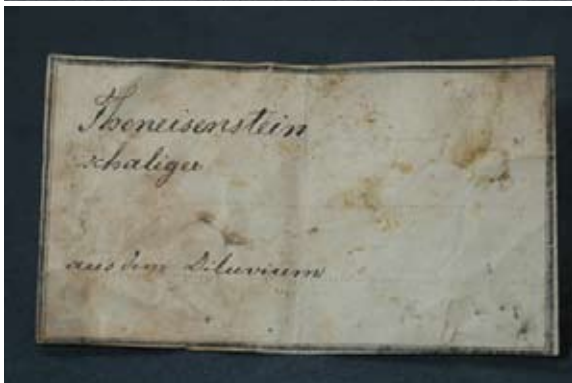 Thoneisenstein
schaliger
aus dem Diluvium